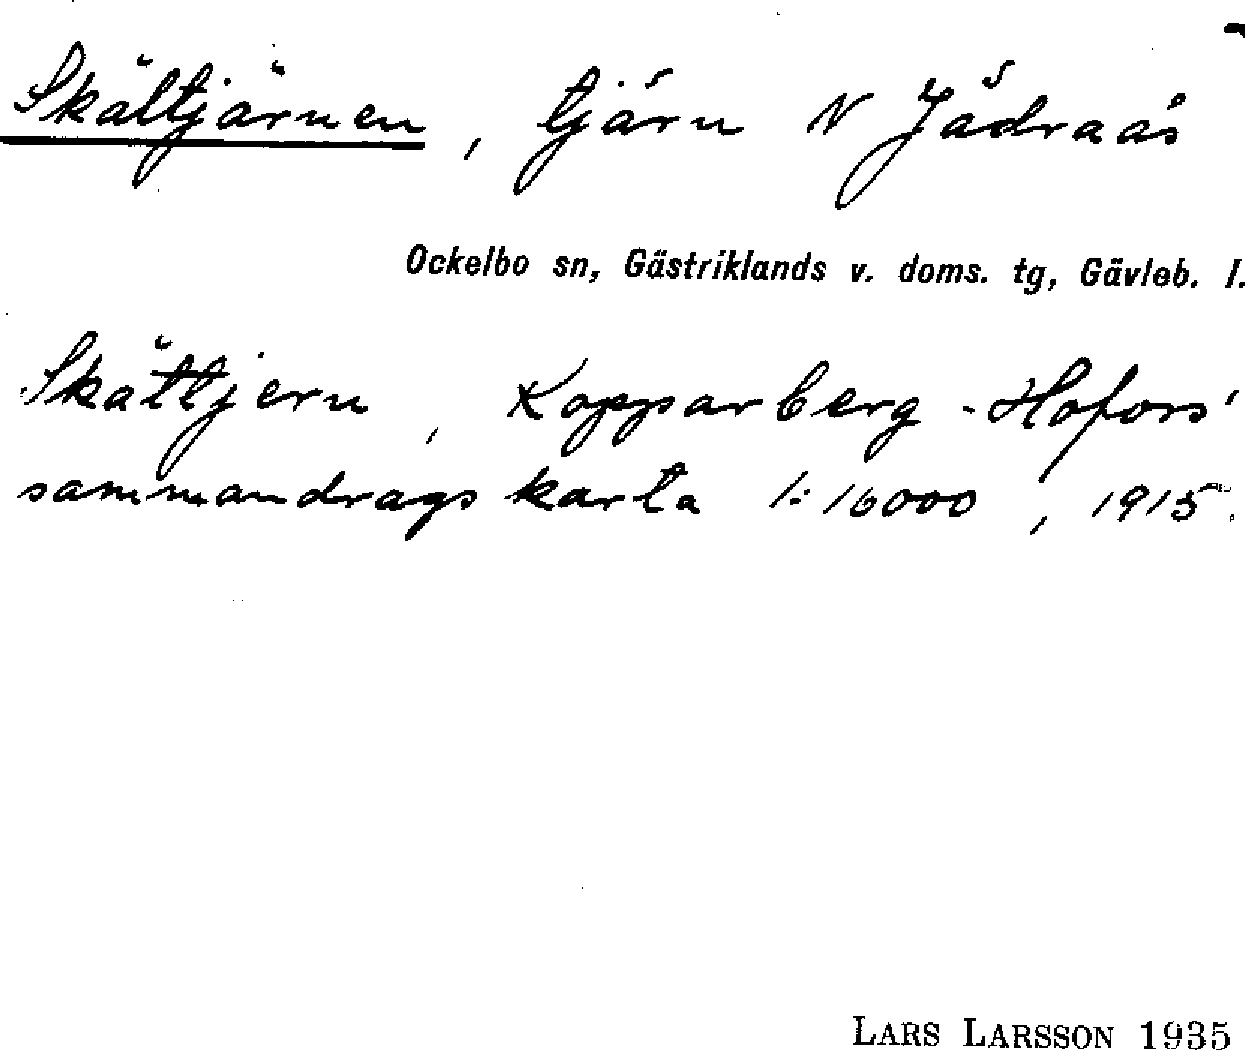 Skältjärnen, tjärn N Jädraås
Ockelbo sn, Gästriklands v. doms. tg, Gävleb. l.
Skättjern, Kopparberg-Hofors'
sammandragskarta 1:16000, 1915.
LARS LARSSON 1935